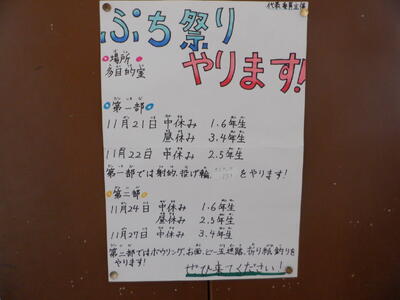 代表委員主催
ぷち祭り
やります!
場所
多目的室
第一部
11月21日 中休み 1.6年生
昼休み 3.4年生
11月22日 中休み 2.5年生
第一部では射的、投げ輪、 をやります!
第二部
11月24日 中休み 1.6年生
昼休み 2.5年生
11月27日 中休み 3.4年生
第二部ではボウリング、お面、ビー玉迷路、折り紙釣りを
やります!
ぜひ来てください!